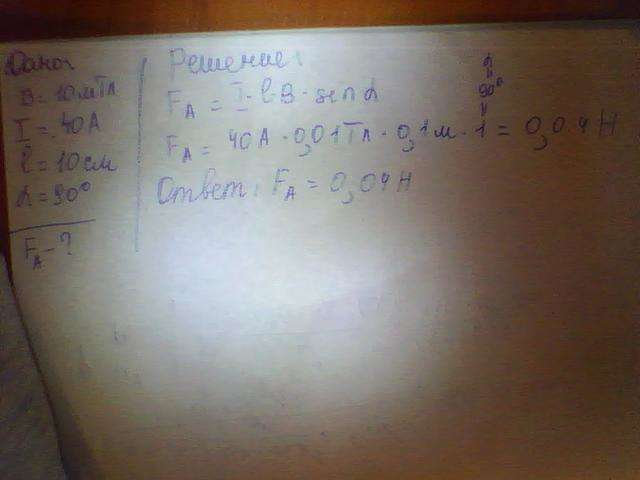 Дано:
B = 10мТл
I = 40А
l = 10см
α = 90°
F_A - ?
Решение:
F_A = I · l · B · sin α
α = 90°
F_A = 40А · 0,01Тл · 0,1м · 1 = 0,04Н
Ответ: F_A = 0,04Н